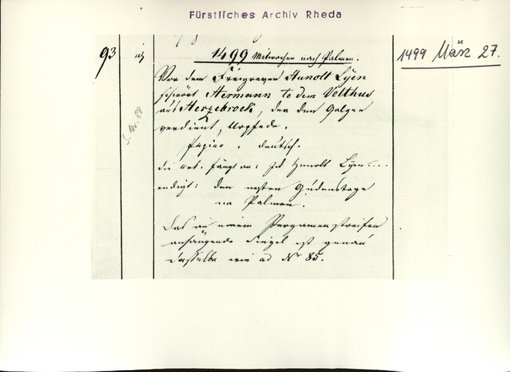 Fürstliches Archiv Rheda
93
1499 Mittwochen nach Palmen.
1499 März 27.
Vor dem Freigrafen Hunolt Lÿen
schwört Hermann to dem Velthus
aus Herzebrock, der den Galgen
verdient, Urphede.
Papier. deutsch.
die Urk. fängt an: Ick Hunolt Lÿen....
endigt: den nesten Gudenstage
na Palmen.
Das an einem Pergamenstreifen
anhängende Siegel ist genau
dasselbe wie ad No 85.